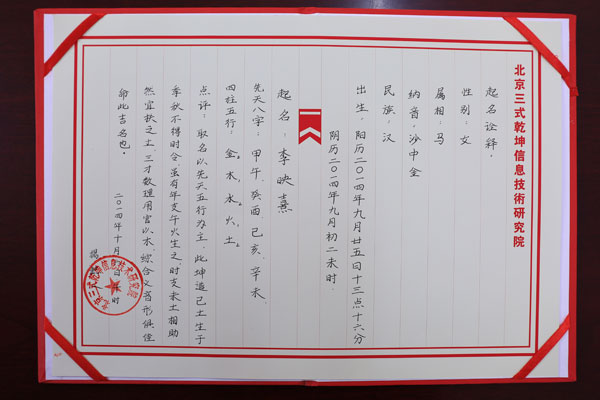 北京三式乾坤信息技術研究院
起名诠释:
性别:女
属相:马
纳音:沙中金
民族:汉
出生:阳历二〇一四年九月廿五日十三点十六分
阴历二〇一四年九月初二未时.
起名:李映熹
先天八字:甲午、癸酉、己亥、辛未.
四柱五行:金、木、水、火、土
点评:取名以先天五行为主,此坤造己土生于
季秋不得时令,虽有年支午火生之,时支未土相助
然宜扶之土,三才数理用宫以木,综合义音形俱佳
命此吉名也.
二〇一四年十月 日 时
北京三式乾坤信息技术研究院